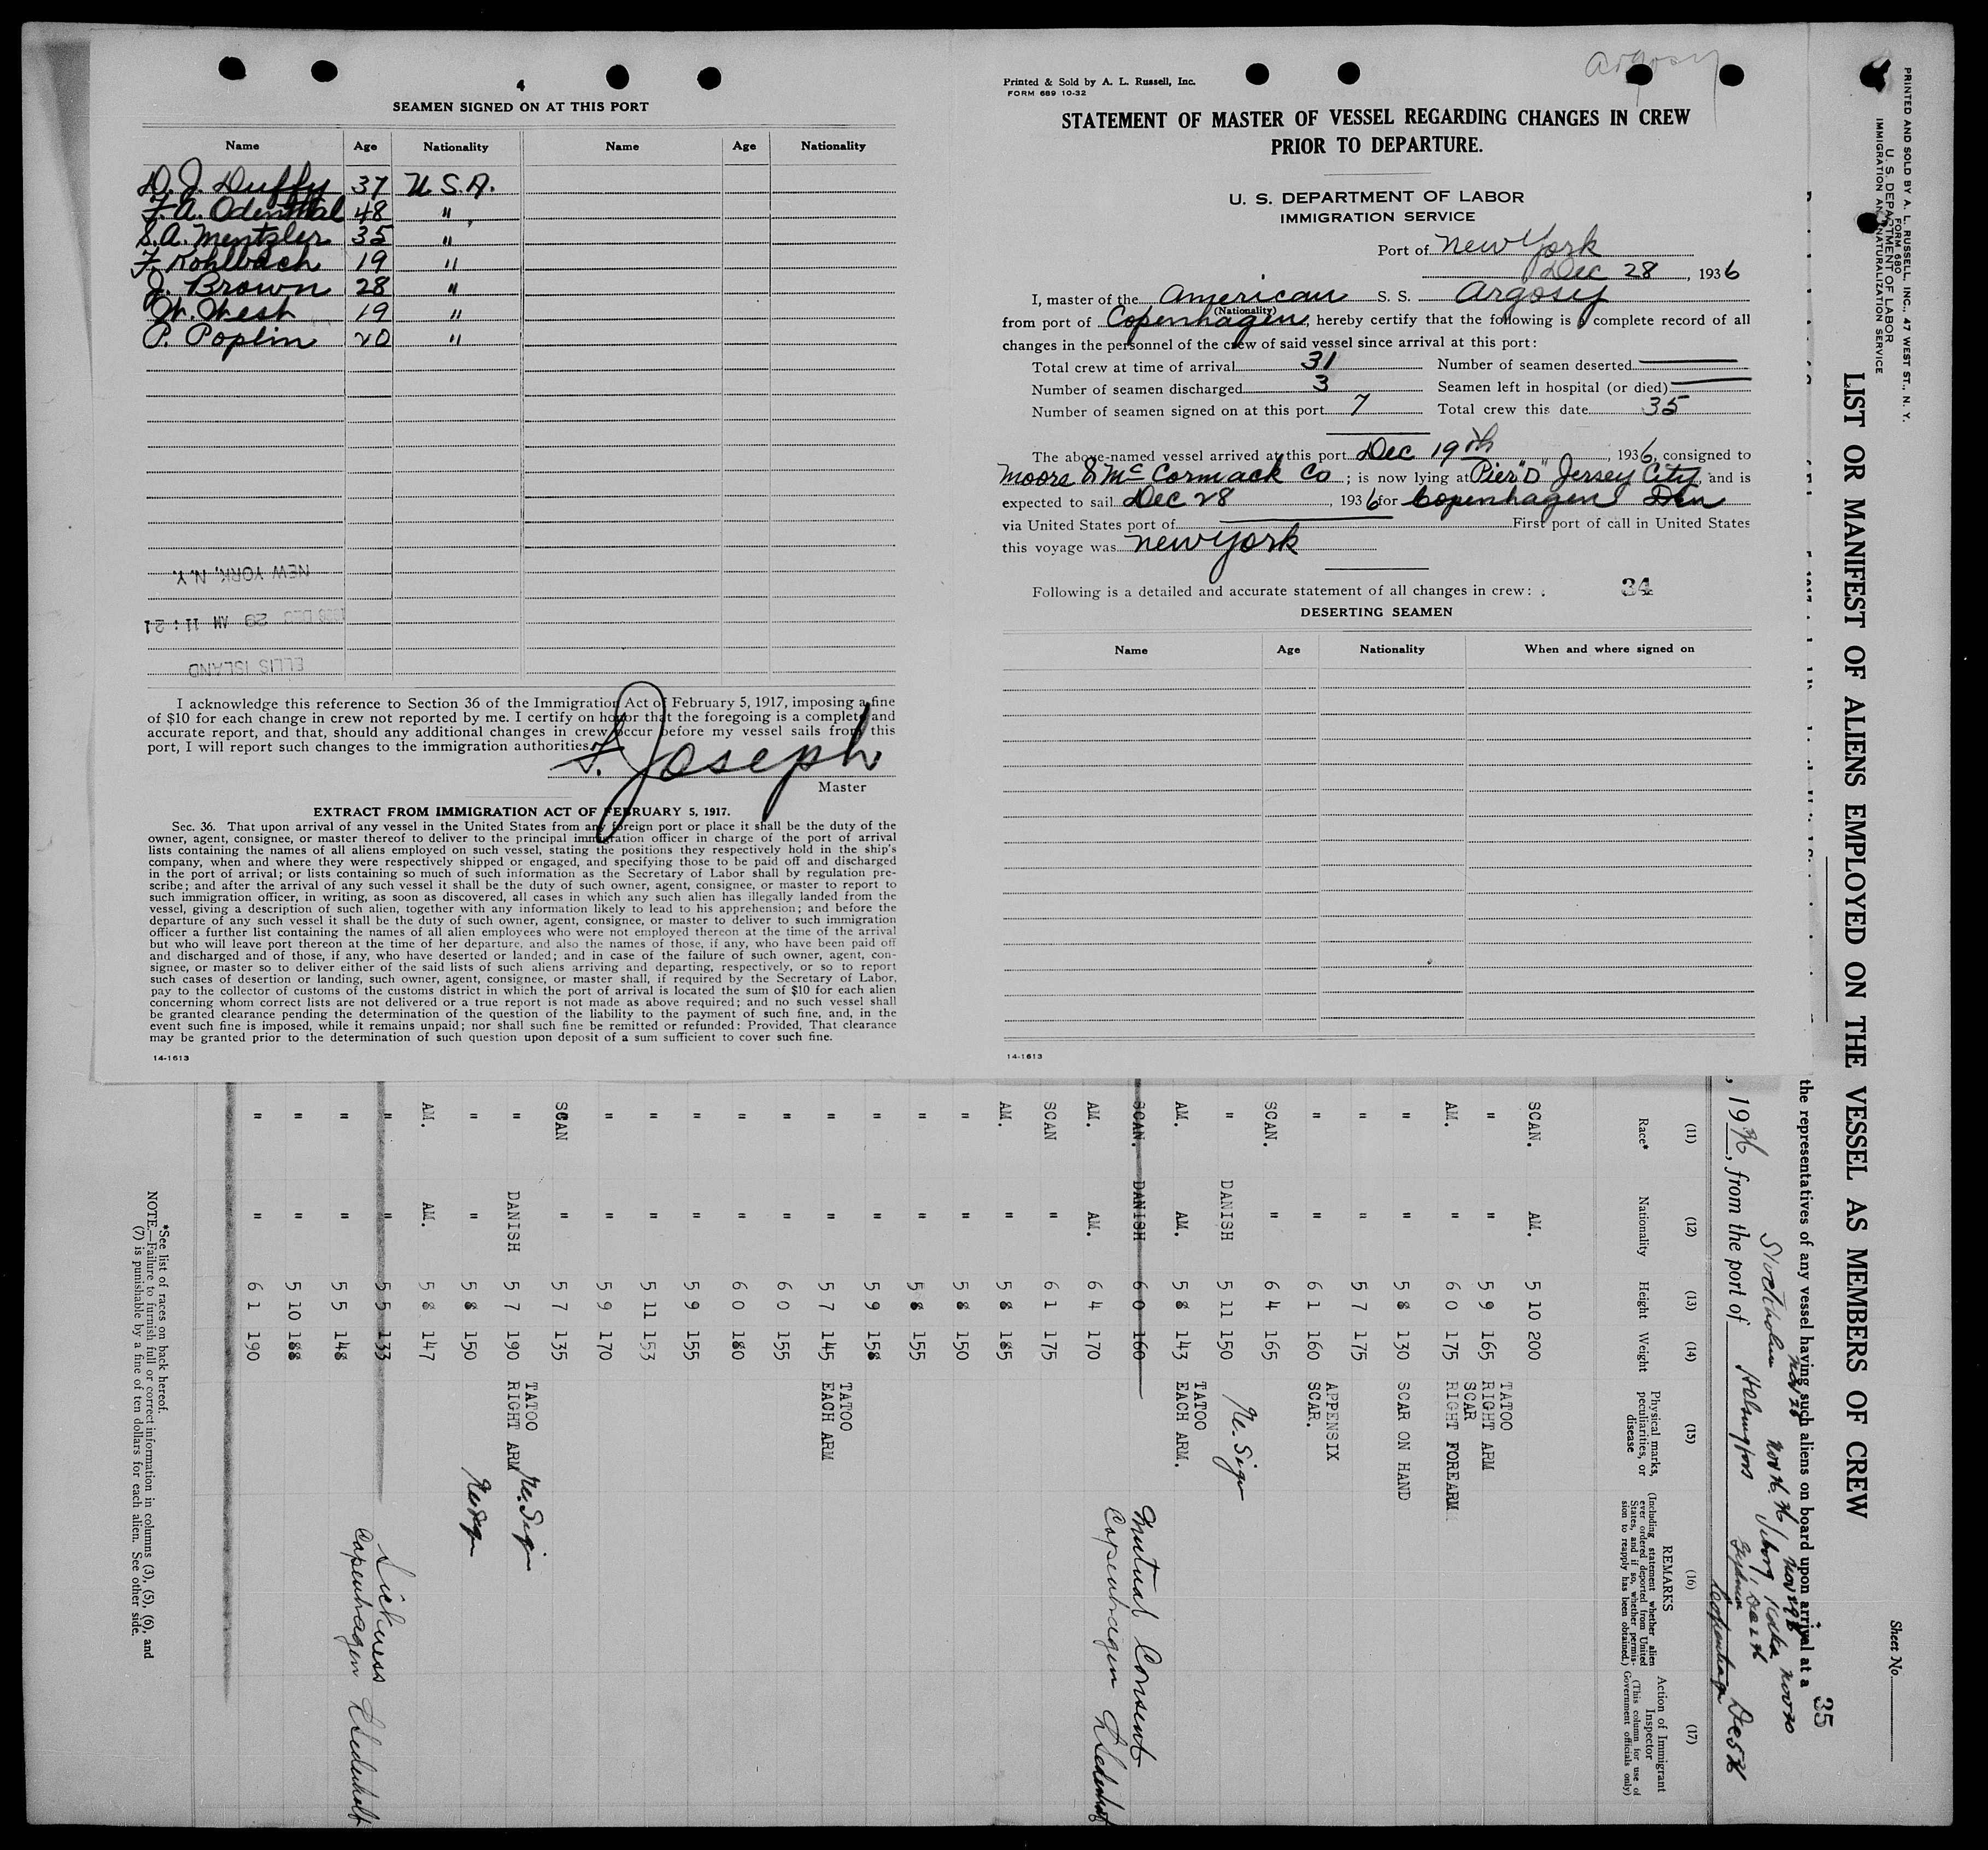 4
SEAMEN SIGNED ON AT THIS PORT
Name Age Nationality Name Age Nationality
D. J. Duffy 37 U.S.A.
F. A. Odenthal 48 "
S. A. Mentzler 35 "
F. Kohlbach 19 "
J. Brown 28 "
W. West 19 "
P. Poplin 20 "
NEW YORK, N.Y.
DEC 29 AM 11:21
ELLIS ISLAND
I acknowledge this reference to Section 36 of the Immigration Act of February 5, 1917, imposing a fine
of $10 for each change in crew not reported by me. I certify on honor that the foregoing is a complete and
accurate report, and that, should any additional changes in crew occur before my vessel sails from this
port, I will report such changes to the immigration authorities.
F. Joseph
Master
EXTRACT FROM IMMIGRATION ACT OF FEBRUARY 5, 1917.
Sec. 36. That upon arrival of any vessel in the United States from any foreign port or place it shall be the duty of the
owner, agent, consignee, or master thereof to deliver to the principal immigration officer in charge of the port of arrival
lists containing the names of all aliens employed on such vessel, stating the positions they respectively hold in the ship's
company, when and where they were respectively shipped or engaged, and specifying those to be paid off and discharged
in the port of arrival; or lists containing so much of such information as the Secretary of Labor shall by regulation pre-
scribe; and after the arrival of any such vessel it shall be the duty of such owner, agent, consignee, or master to report to
such immigration officer, in writing, as soon as discovered, all cases in which any such alien has illegally landed from the
vessel, giving a description of such alien, together with any information likely to lead to his apprehension; and before the
departure of any such vessel it shall be the duty of such owner, agent, consignee, or master to deliver to such immigration
officer a further list containing the names of all alien employees who were not employed thereon at the time of the arrival
but who will leave port thereon at the time of her departure, and also the names of those, if any, who have been paid off
and discharged and of those, if any, who have deserted or landed; and in case of the failure of such owner, agent, con-
signee, or master so to deliver either of the said lists of such aliens arriving and departing, respectively, or so to report
such cases of desertion or landing, such owner, agent, consignee, or master shall, if required by the Secretary of Labor,
pay to the collector of customs of the customs district in which the port of arrival is located the sum of $10 for each alien
concerning whom correct lists are not delivered or a true report is not made as above required; and no such vessel shall
be granted clearance pending the determination of the question of the liability to the payment of such fine, and, in the
event such fine is imposed, while it remains unpaid; nor shall such fine be remitted or refunded: Provided, That clearance
may be granted prior to the determination of such question upon deposit of a sum sufficient to cover such fine.
14-1613
Argosy
Printed & Sold by A. L. Russell, Inc.
FORM 689 10-32
STATEMENT OF MASTER OF VESSEL REGARDING CHANGES IN CREW
PRIOR TO DEPARTURE.
U. S. DEPARTMENT OF LABOR
IMMIGRATION SERVICE
Port of New York
Dec 28, 1936
I, master of the American S. S. Argosy
(Nationality)
from port of Copenhagen, hereby certify that the following is a complete record of all
changes in the personnel of the crew of said vessel since arrival at this port:
Total crew at time of arrival 31 Number of seamen deserted
Number of seamen discharged 3 Seamen left in hospital (or died)
Number of seamen signed on at this port 7 Total crew this date 35
The above-named vessel arrived at this port Dec 19th, 1936, consigned to
Moore & McCormack Co; is now lying at Pier "D" Jersey City, and is
expected to sail Dec 28, 1936 for Copenhagen Den
via United States port of First port of call in United States
this voyage was New York
Following is a detailed and accurate statement of all changes in crew: 34
DESERTING SEAMEN
Name Age Nationality When and where signed on
14-1613
PRINTED AND SOLD BY A. L. RUSSELL, INC., 47 WEST ST., N. Y.
FORM 680
U. S. DEPARTMENT OF LABOR
IMMIGRATION AND NATURALIZATION SERVICE
Sheet No.
LIST OR MANIFEST OF ALIENS EMPLOYED ON THE VESSEL AS MEMBERS OF CREW
35
the representatives of any vessel having such aliens on board upon arrival at a
Stockholm Nov 26 Viborg Kotka Nov 30
, 1936, from the port of Helsingfors Gydnia Copenhagen Dec 5
(11) (12) (13) (14) (15) (16) (17)
Race* Nationality Height Weight Physical marks, peculiarities, or disease REMARKS (Including statement whether alien ever ordered deported from United States, and if so, whether permission to reapply has been obtained.) Action of Immigrant Inspector (This column for use of Government officials only)
SCAN. AM. 5 10 200
" " 5 9 165 TATOO RIGHT ARM
AM. " 6 0 175 SCAR RIGHT FOREARM
" " 5 8 130 SCAR ON HAND
" " 5 7 175
" " 6 1 160 APPENSIX SCAR.
SCAN. " 6 4 165
" DANISH 5 11 150 Ne. Sign
AM. AM. 5 8 143 TATOO EACH ARM.
SCAN. DANISH 6 0 160 Mutual Consent
AM. AM. 6 4 170 Copenhagen
SCAN " 6 1 175
AM. " 5 8 185
" " 5 8 150
" " 5 8 155
" " 5 9 158
" " 5 7 145 TATOO EACH ARM
" " 6 0 155
" " 6 0 180
" " 5 9 155
" " 5 11 153
" " 5 9 170
SCAN " 5 7 135
" DANISH 5 7 190 TATOO RIGHT ARM Ne. Sign
" " 5 8 150 Ne Sign
AM. AM. 5 8 147
" " 5 5 133 Sickness
" " 5 5 148 Copenhagen
" " 5 10 188
" " 6 1 190
*See list of races on back hereof.
NOTE.—Failure to furnish full or correct information in columns (3), (5), (6), and
(7) is punishable by a fine of ten dollars for each alien. See other side.